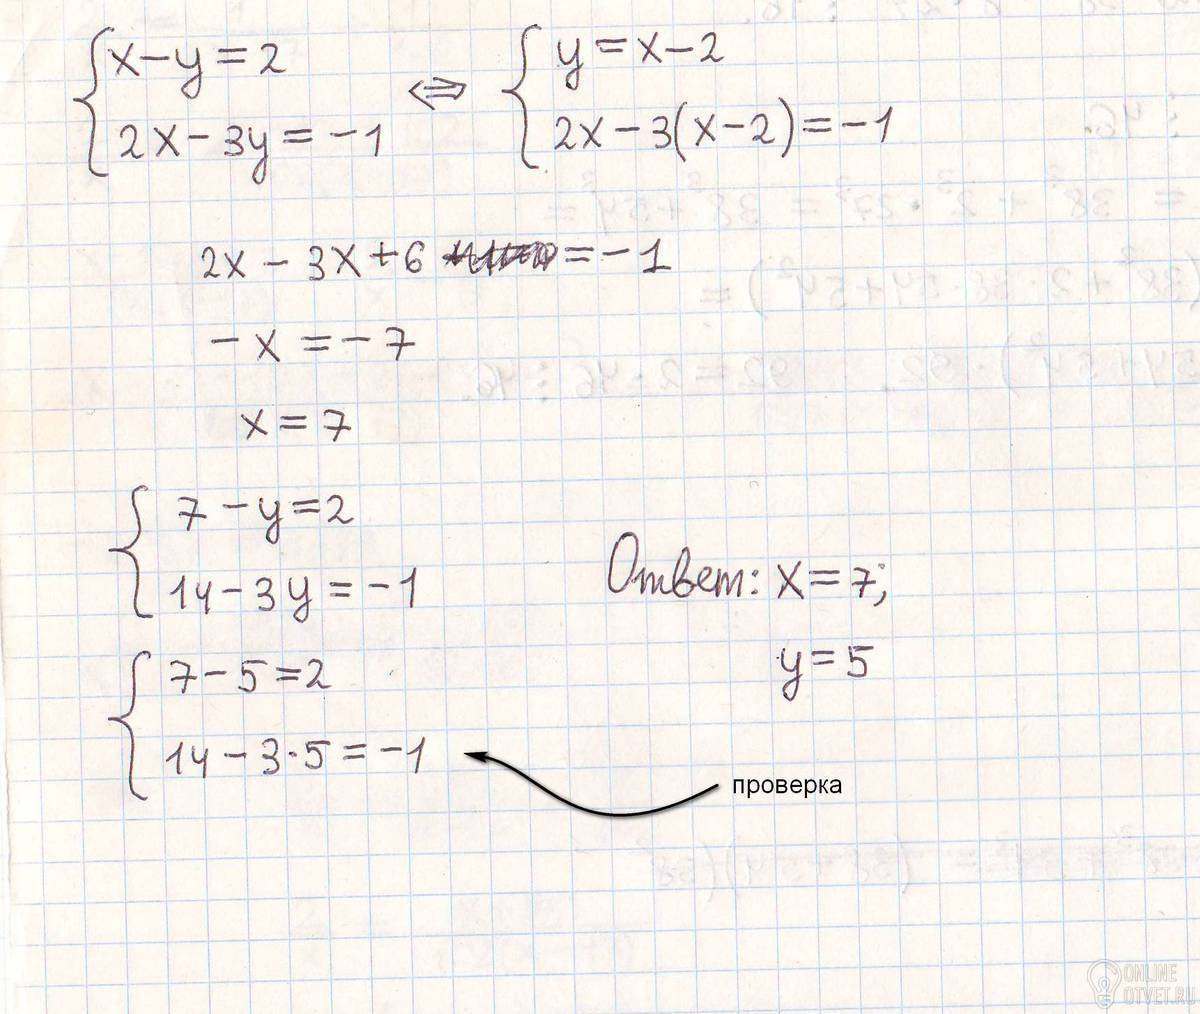 { x-y=2 ⇔ { y=x-2
2x-3y=-1 2x-3(x-2)=-1
2x-3x+6 =-1
-x=-7
x=7
{ 7-y=2
14-3y=-1
Ответ: x=7;
y=5
{ 7-5=2
14-3·5=-1
проверка
ONLINE
OTVET.RU